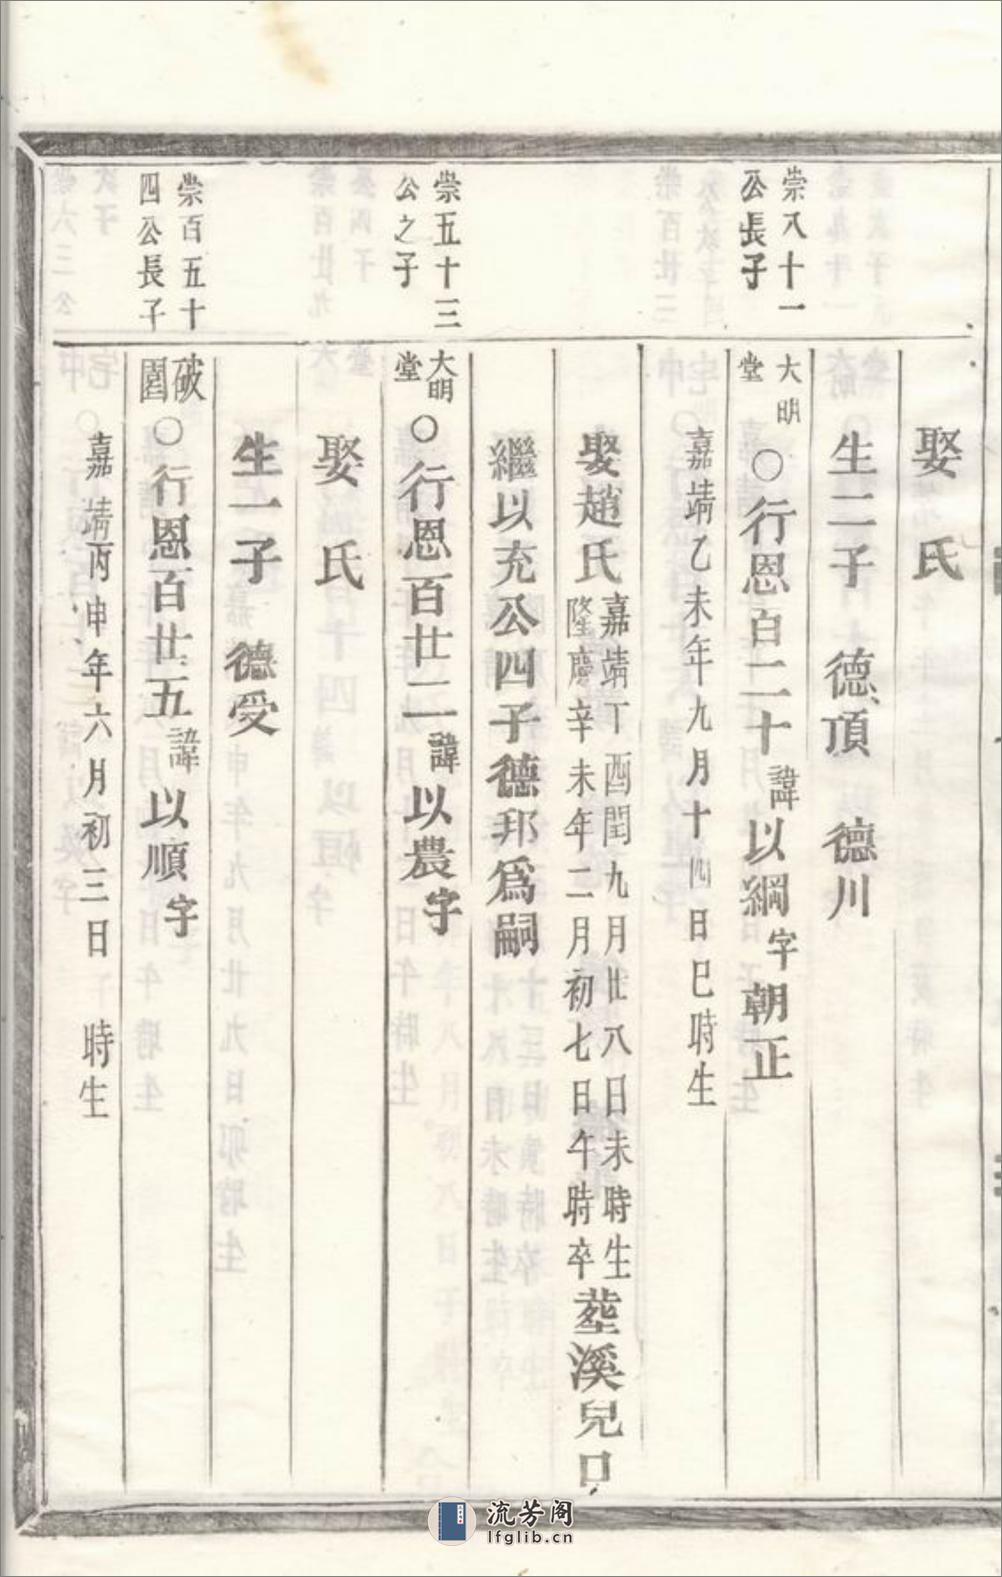 娶 氏
生二子 德頂 德川
崇八十一
公長子
大明
堂
○行恩百二十諱以綱字朝正
嘉靖乙未年九月十四日巳時生
娶趙氏
嘉靖丁酉閏九月廿八日未時生
隆慶辛未年二月初七日午時卒
塟溪兒口
繼以充公四子德邦爲嗣
崇五十三
公之子
大明
堂
○行恩百廿二諱以農字
娶 氏
生一子 德受
崇百五十
四公長子
破
○行恩百廿五諱以順字
嘉靖丙申年六月初三日 時生
流芳阁
lfglib.cn